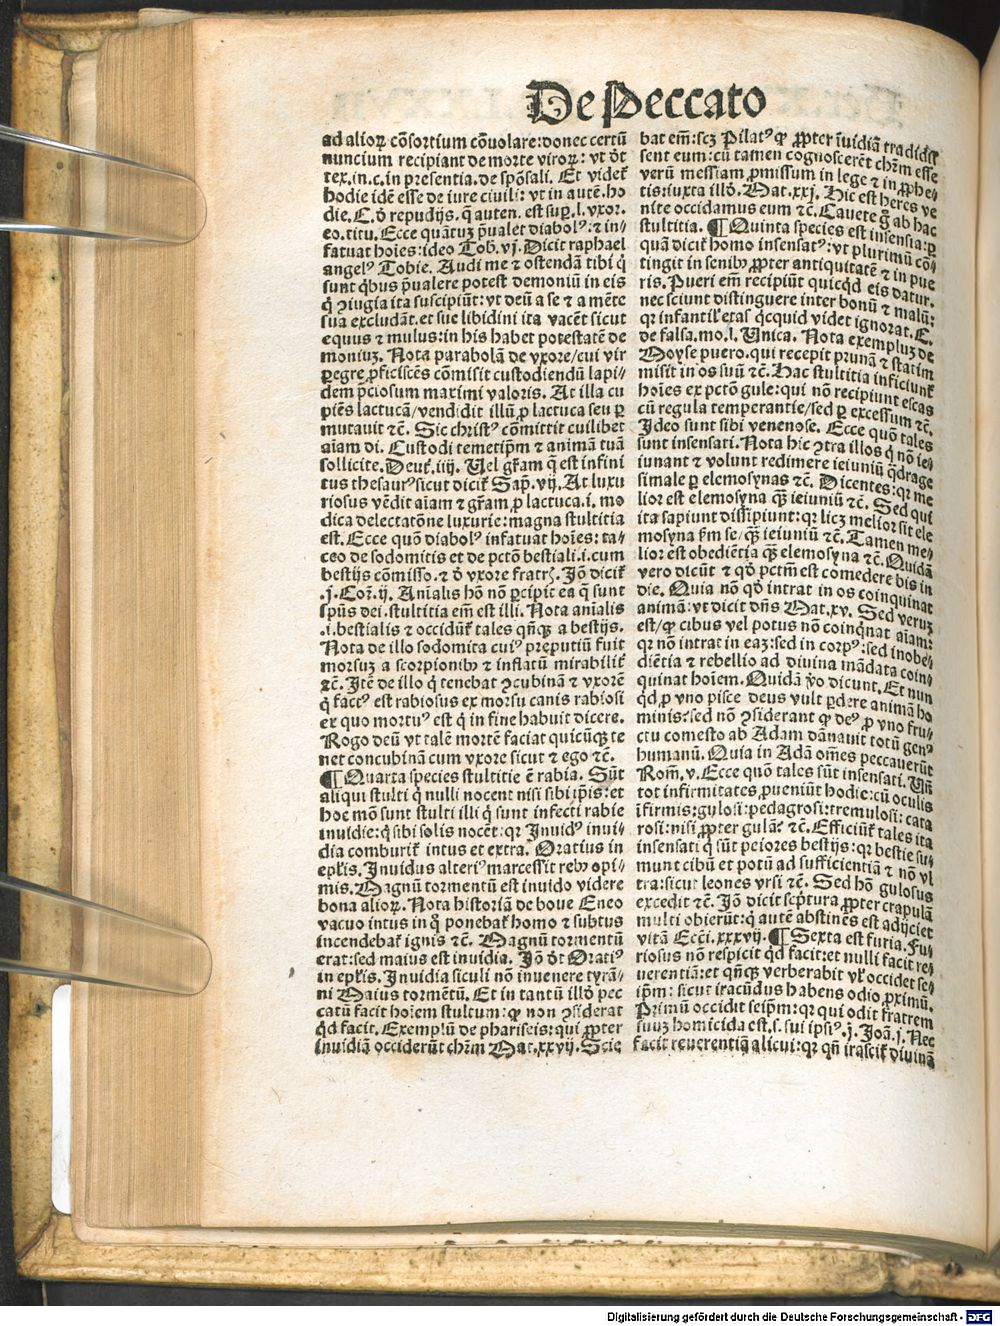 De Peccato
ad alioꝝ cōsortium cōuolare: donec certū
nuncium recipiant de morte viroꝝ: vt ðt
tex. in. c. in presentia. de spōsali. Et videt᷑
hodie idē esse de iure ciuili: vt in autē. ho
die. C. ð repudijs. q̄ auten. est sup̲. l. vxor.
eo. titu. Ecce quātuꝫ p̄ualet diabolꝰ: ⁊ in⸗
fatuat hoīes: ideo Tob. vj. Dicit raphael
angelꝰ Tobie. Audi me ⁊ ostendā tibi q̇
sunt qͥbus p̄ualere potest demoniū in eis
q̇ ꝯiugia ita suscipiūt: vt deū a se ⁊ a mēte
sua excludāt. et sue libidini ita vacēt sicut
equus ⁊ mulus: in his habet potestatē de
moniuꝫ. Nota parabolā de vxore/cui vir
ꝑegre ꝓficiscēs cōmisit custodiendū lapi⸗
dem p̄ciosum maximi valoris. At illa cu
piēs lactucā/vendidit illū ꝓ lactuca seu ꝑ
mutauit ⁊c̄. Sic christꝰ cōmittit cuilibet
aīam di. Custodi temetip̄m ⁊ animā tuā
sollicite. Deut᷑. iiij. Uel gr̄am q̄ est infini
tus thesaurꝰ sicut dicit᷑ Sap̄. vij. At luxu
riosus vēdit aīam ⁊ gr̄am ꝓ lactuca. i. mo
dica delectatōne luxurie: magna stultitia
est. Ecce quō diabolꝰ infatuat hoīes: ta⸗
ceo de sodomitis et de pctō bestiali. i. cum
bestijs cōmisso. ⁊ ð vxore fratrꝭ. Jō dicit᷑
.j. Coꝝ. ij. Aīalis hō nō ꝑcipit ea q̄ sunt
spūs dei. stultitia em̄ est illi. Nota aīalis
.i. bestialis ⁊ occidūt᷑ tales qn̄qꝫ a bestijs.
Nota de illo sodomita cuiꝰ preputiū fuit
morsuꝫ a scorpionibꝰ ⁊ inflatū mirabilit᷑
⁊c̄. Jtē de illo q̇ tenebat ꝯcubinā ⁊ vxorē
q̇ factꝰ est rabiosus ex morsu canis rabiosi
ex quo mortuꝰ est q̇ in fine habuit dicere.
Rogo deū vt talē mortē faciat quicūqꝫ te
net concubinā cum vxore sicut ⁊ ego ⁊c̄.
¶ Quarta species stultitie ē rabia. Sūt
aliqui stulti q̇ nulli nocent nisi sibi ip̄is: et
hoc mō sunt stulti illi q̇ sunt infecti rabie
inuidie: q̇ sibi solis nocēt: qꝛ Jnuidꝰ inui⸗
dia comburit᷑ intus et extra. Oratius in
ep̄lis. Jnuidus alteriꝰ marcessit rebꝰ opi⸗
mis. Magnū tormentū est inuido videre
bona alioꝝ. Nota historiā de boue Eneo
vacuo intus in q̊ ponebat᷑ homo ⁊ subtus
incendebat᷑ ignis ⁊c̄. Magnū tormentū
erat: sed maius est inuidia. Jō ðt Oratiꝰ
in ep̄lis. Jnuidia siculi nō inuenere tyrā⸗
ni Maius tormētū. Et in tantū illð pec
catū facit hoīem stultum: ꝙ non ꝯsiderat
qͥd facit. Exemplū de phariseis: qui ꝓpter
inuidiā occiderūt chr̄m Mat. xxvij. Scie
bat em̄: scꝫ Pilatꝰ ꝙ ꝓpter īuidiā tradidis
sent eum: cū tamen cognoscerēt chr̄m esse
verū messiam ꝓmissum in lege ⁊ in ꝓphe⸗
tis: iuxta illð. Mat. xxj. Hic est heres ve
nite occidamus eum ⁊c̄. Cauete g̊ ab hac
stultitia. ¶ Quinta species est insensia: ꝑ
quā dicit᷑ homo insensatꝰ: vt plurimū cō⸗
tingit in senibꝰ ꝓpter antiquitatē ⁊ in pue
ris. Pueri em̄ recipiūt quicqͥd eis datur.
nec sciunt distinguere inter bonū ⁊ malū:
qꝛ infantil᷑ etas qͥcquid videt ignorat. C.
de falsa. mo. l. Unica. Nota exempluꝫ de
Moyse puero. qui recepit prunā ⁊ statim
misit in os suū ⁊c̄. Hac stultitia inficiunt᷑
hoīes ex pctō gule: qui nō recipiunt escas
cū regula temperantie/sed ꝑ excessum ⁊c̄.
Jdeo sunt sibi venenose. Ecce quō tales
sunt insensati. Nota hic ꝯtra illos q̇ nō ie⸗
iunant ⁊ volunt redimere ieiuniū q̄drage
simale ꝑ elemosynas ⁊c̄. Dicentes: qꝛ me
lior est elemosyna qꝫ ieiuniū ⁊c̄. Sed qui
ita sapiunt dissipiunt: qꝛ licꝫ melior sit ele
mosyna ẜm se/qꝫ ieiuniū ⁊c̄. Tamen me⸗
lior est obediētia qꝫ elemosyna ⁊c̄. Quidā
vero dicūt ⁊ qð pctm̄ est comedere bis in
die. Quia nō qð intrat in os coinquinat
animā: vt dicit dn̄s Mat. xv. Sed veruꝫ
est/ꝙ cibus vel potus nō coinqͥnat aīam:
qꝛ nō intrat in eaꝫ: sed in corpꝰ: sed inobe⸗
diētia ⁊ rebellio ad diuina mādata coin⸗
quinat hoīem. Quidā ꝟo dicunt. Et nun
qͥd ꝓ vno pisce deus vult ꝑdere animā ho
minis: sed nō ꝯsiderant ꝙ deꝰ ꝓ vno fru⸗
ctu comesto ab Adam dānauit totū genꝰ
humanū. Quia in Adā om̄es peccauerūt
Rom̄. v. Ecce quō tales sūt insensati. Uñ
tot infirmitates ꝓueniūt hodie: cū oculis
īfirmis: gulosi: pedagrosi: tremulosi: cata
rosi: nisi ꝓpter gulā: ⁊c̄. Efficiūt᷑ tales ita
insensati q̇ sūt peiores bestijs: qꝛ bestie su⸗
munt cibū et potū ad sufficientiā ⁊ nō vl
tra: sicut leones vrsi ⁊c̄. Sed hō gulosus
excedit ⁊c̄. Jō dicit sc̄ptura ꝓpter crapulā
multi obierūt: q̇ autē abstinēs est adijciet
vitā Ecc̄i. xxxvij. ¶ Sexta est furia. Fu⸗
riosus nō respicit qͥd facit: et nulli facit re⸗
uerentiā: et qn̄qꝫ verberabit vl᷑ occidet se⸗
ip̄m: sicut iracūdus habens odio ꝓximū.
Primū occidit seip̄m: qꝛ qui odit fratrem
suuꝫ homicida est. s. sui ipsiꝰ. j. Joā. j. Nec
facit reuerentiā alicui: qꝛ qn̄ irascit᷑ diuinā
Digitalisierung gefördert durch die Deutsche Forschungsgemeinschaft - DFG